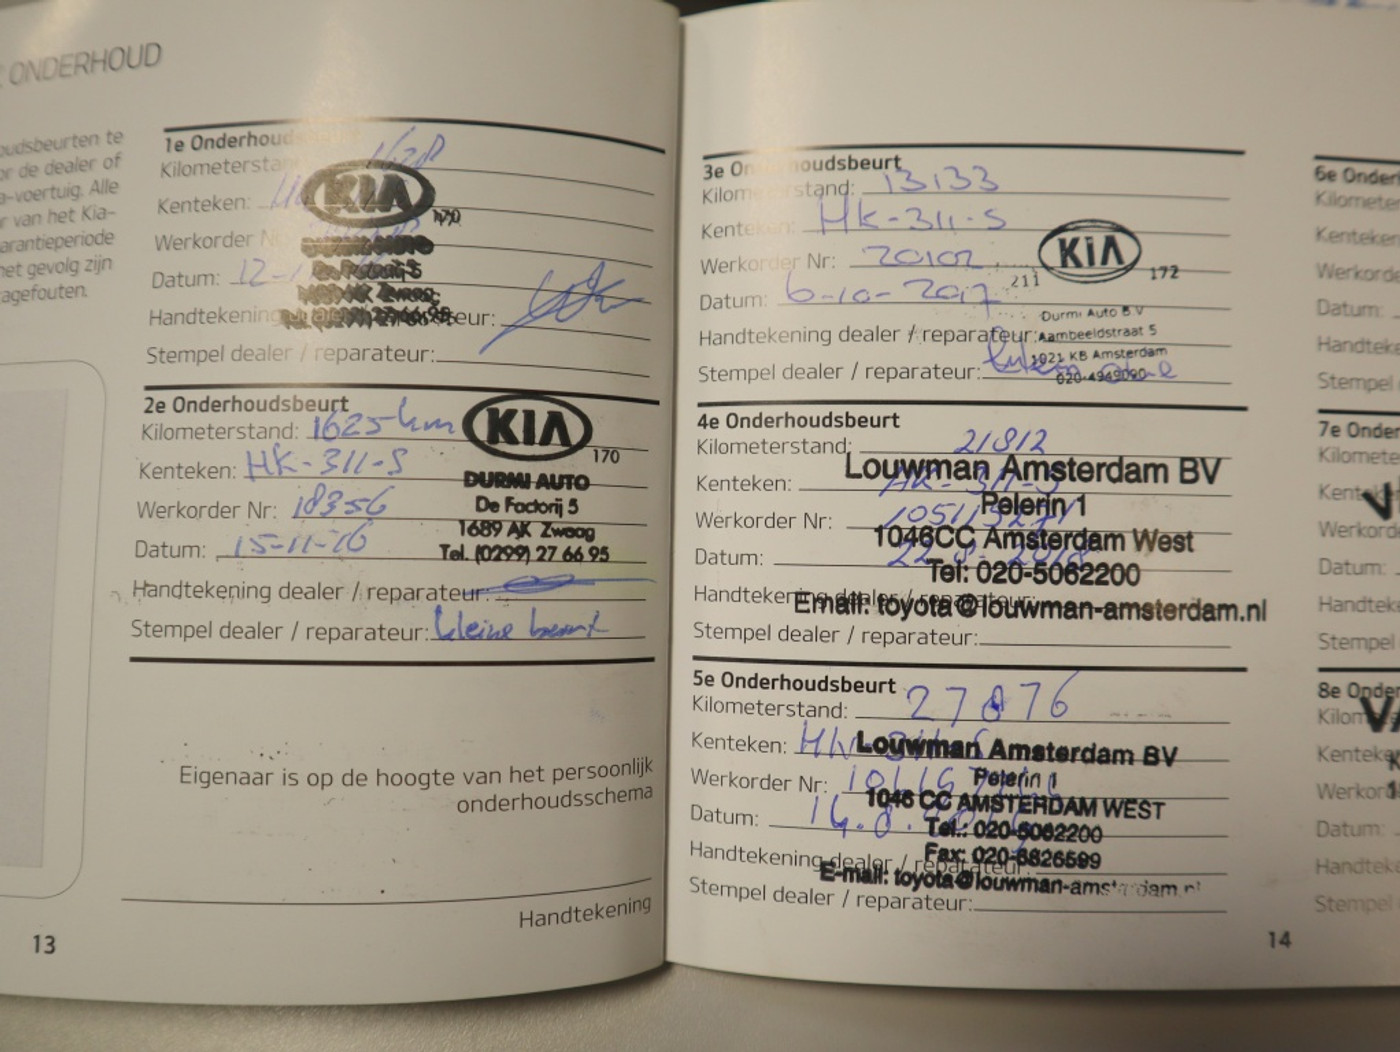 ONDERHOUD
oudsbeurten te
or de dealer of
a-voertuig. Alle
r van het Kia-
arantieperiode
het gevolg zijn
agefouten.
1e Onderhoud
Kilometerstan
Kenteken:
Werkorder N
Datum: 12-1
Handtekening eur:
Stempel dealer / reparateur:
KIA
170
2e Onderhoudsbeurt
Kilometerstand: 1625 km
Kenteken: HK-311-S
Werkorder Nr: 18356
Datum: 15-11-16
Handtekening dealer / reparateur:
Stempel dealer / reparateur: kleine beurt
KIA
170
DURMI AUTO
De Factorij 5
1689 AK Zwaag
Tel. (0299) 27 66 95
Eigenaar is op de hoogte van het persoonlijk
onderhoudsschema
Handtekening
13
3e Onderhoudsbeurt
Kilometerstand: 13133
Kenteken: HK-311-S
Werkorder Nr: 20102
Datum: 6-10-2017
Handtekening dealer / reparateur:
Stempel dealer / reparateur:
KIA
211
172
Durmi Auto B.V
Aambeeldstraat 5
1021 KB Amsterdam
020-4949090
4e Onderhoudsbeurt
Kilometerstand: 21812
Kenteken:
Werkorder Nr:
Datum:
Handtekening dealer / reparateur:
Stempel dealer / reparateur:
Louwman Amsterdam BV
Pelerin 1
1046CC Amsterdam West
Tel: 020-5062200
Email: toyota@louwman-amsterdam.nl
5e Onderhoudsbeurt
Kilometerstand: 27876
Kenteken:
Werkorder Nr:
Datum:
Handtekening dealer / reparateur:
Stempel dealer / reparateur:
Louwman Amsterdam BV
Pelerin 1
1046 CC AMSTERDAM WEST
Tel.: 020-5062200
Fax: 020-6826599
E-mail: toyota@louwman-amsterdam.nl
14
6e Onder
Kilometer
Kenteken
Werkord
Datum:
Handteke
Stempel
7e Onder
Kilometer
Kent
Werkord
Datum:
Handteke
Stempel
8e Onder
Kilom
Kenteke
Werkor
Datum:
Handteke
Stempel